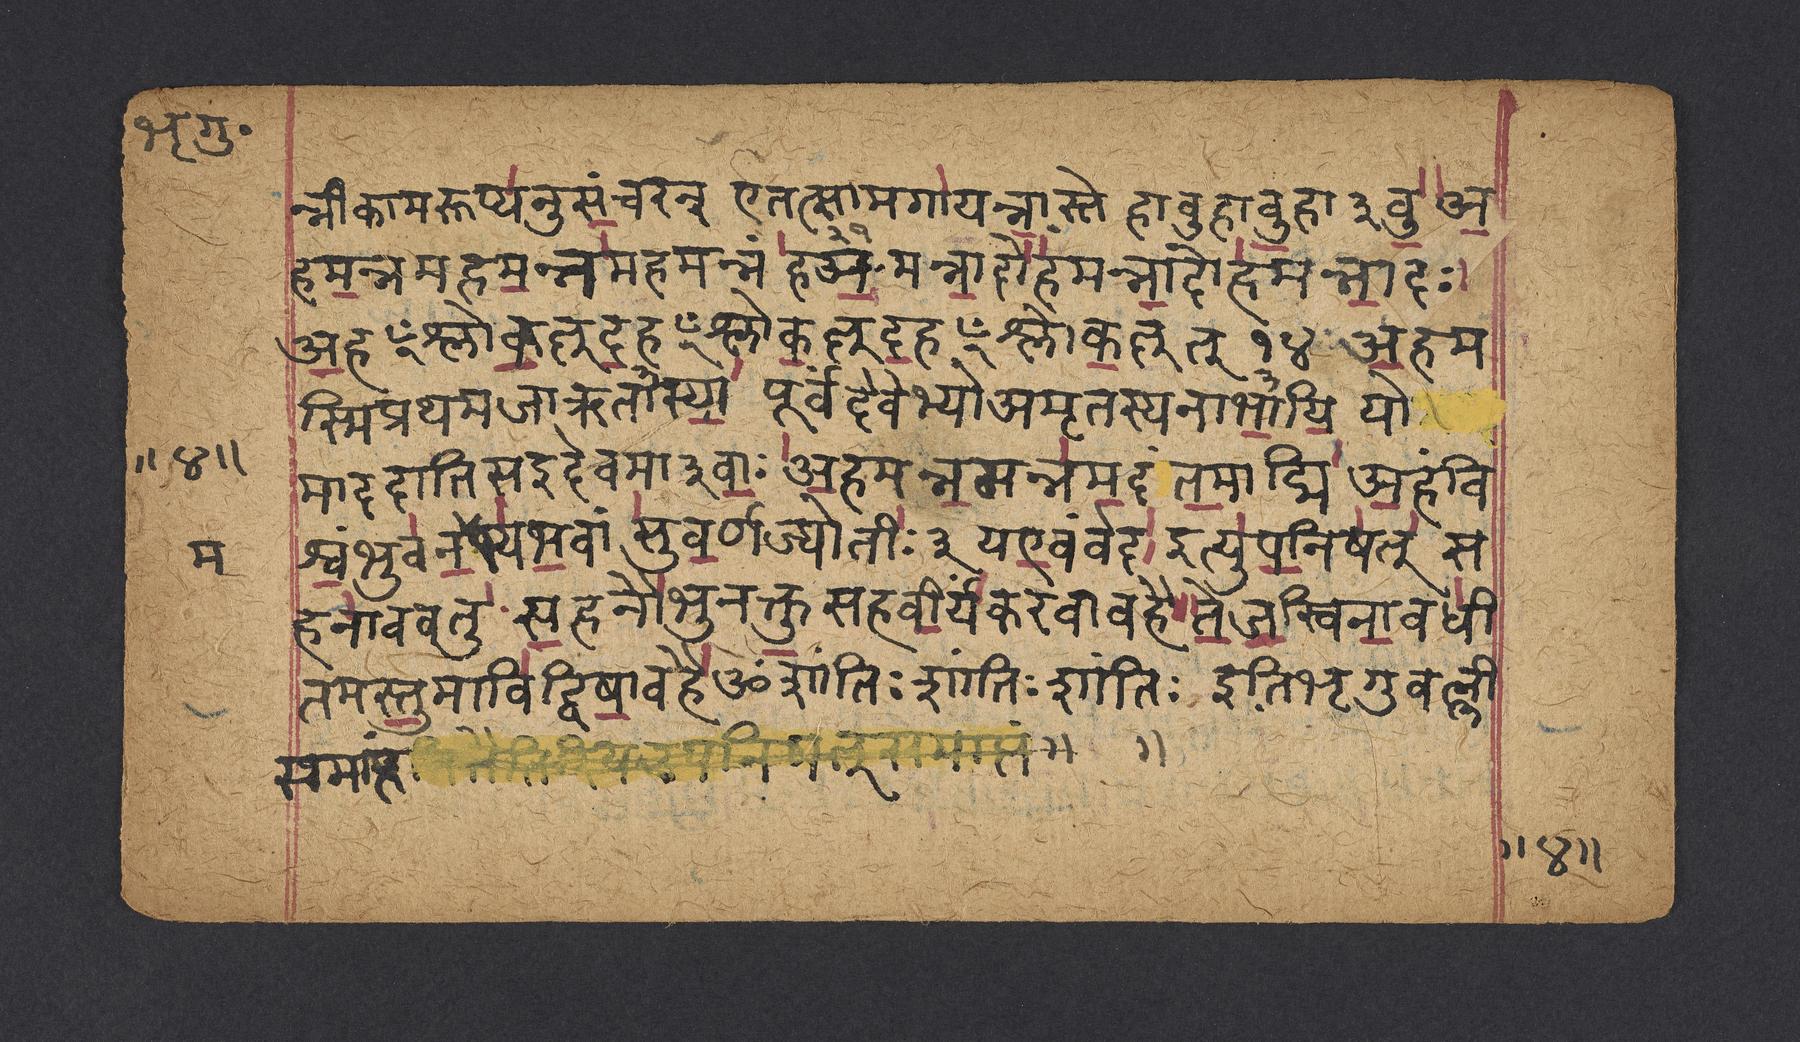 भृगु॰
न्नीकामरूप्यनुसंचरन् एतत्सामगायन्नास्ते हावुहावुहा३वु अ
हमन्नमहमन्नमहमन्नं हअ३१मन्नादोहमन्नादोहमन्नादः
अहꣳश्लोककृदहꣳश्लोककृदहꣳश्लोककृत् १४ अहम
स्मिप्रथमजाऋता३स्या पूर्वंदेवेभ्योअमृतस्यना३भायि यो
माददातिसइदेवमा३वाः अहमन्नमन्नमदंतमाद्मि अहंवि
॥४॥
श्वंभुवनमभ्यभवां सुवर्णज्योतीः ३ यएवंवेद इत्युपनिषत् स
म
हनाववतु सहनौभुनक्तु सहवीर्यंकरवावहै तेजस्विनावधी
तमस्तुमाविद्विषावहै ॐ शांतिः शांतिः शांतिः इतिभृगुवल्ली
समाप्त उपनिषत्समाप्तं ॥ ॥
॥४॥